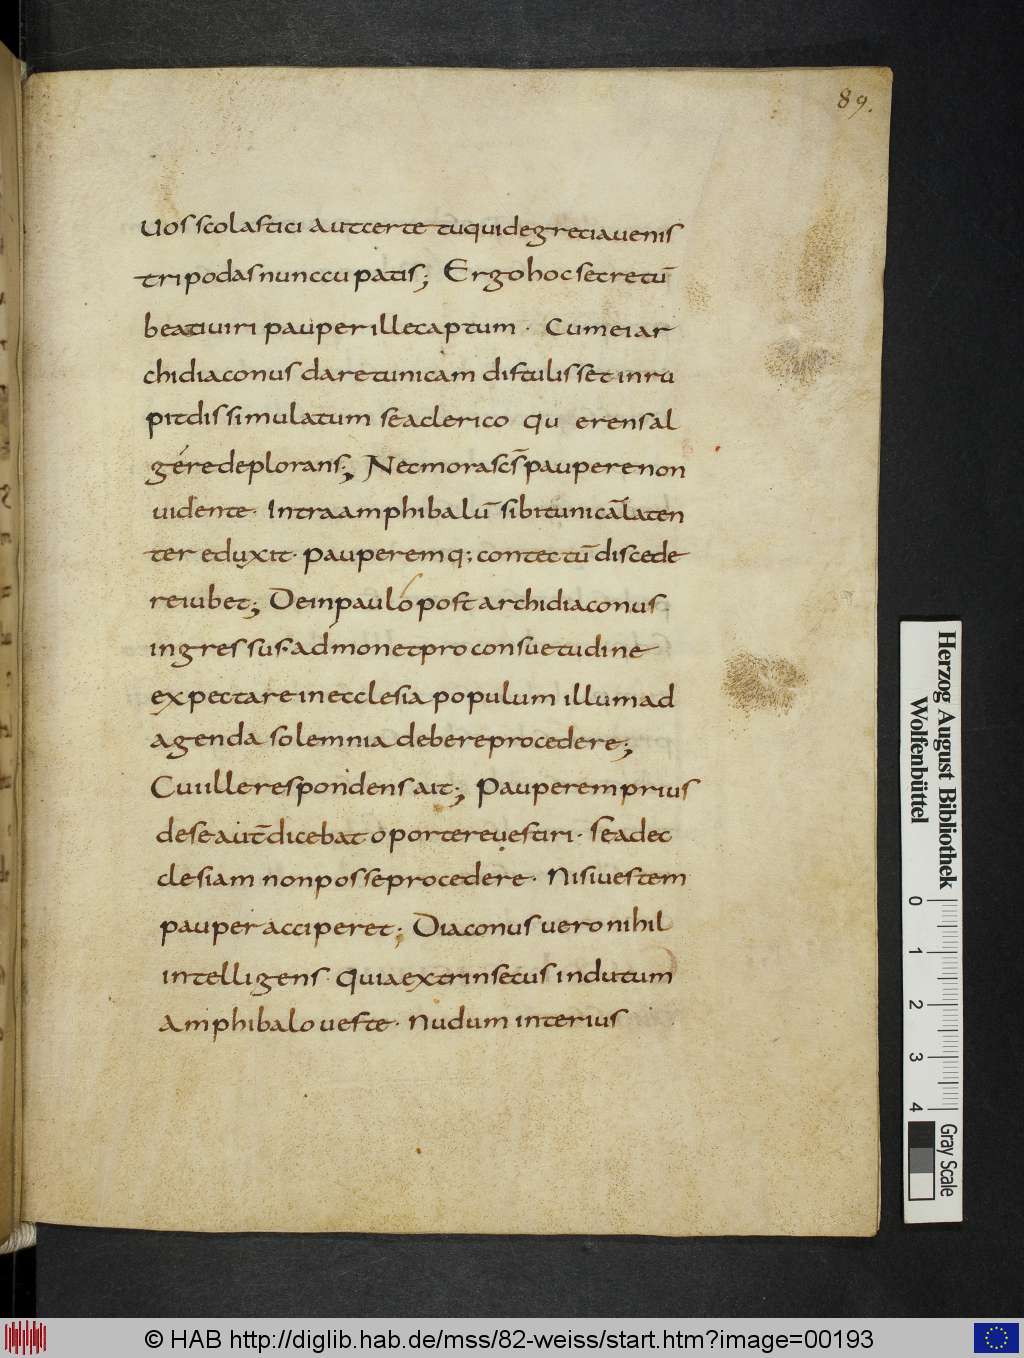 89.
uos scolastici aut certe tu qui de gretia uenis
tripodas nunccupatis; Ergo hoc secretū
beati uiri pauper ille captum · Cum ei ar
chidiaconus dare tunicam distulisset inru
pit dissimulatum se a clerico qu erens al
gére deplorans; Nec mora scs̄ paupere non
uidente · Intra amphibalū sibi tunicā laten
ter eduxit · pauperemq; contectū discede
re iubet; Dein pauló post archidiaconus
ingressus · admonet pro consuetudine
expectare in ecclesia populum illum ad
agenda solemnia debere procedere;
Cui ille respondens ait; Pauperem prius
de se aut̄ dicebat oportere uestiri · se ad ec
clesiam non posse procedere · Nisi uestem
pauper acciperet; Diaconus uero nihil
intelligens · Quia extrinsecus indutum
amphibalo ueste · nudum interius
Herzog August Bibliothek
Wolfenbüttel
0 1 2 3 4
Gray Scale
© HAB http://diglib.hab.de/mss/82-weiss/start.htm?image=00193